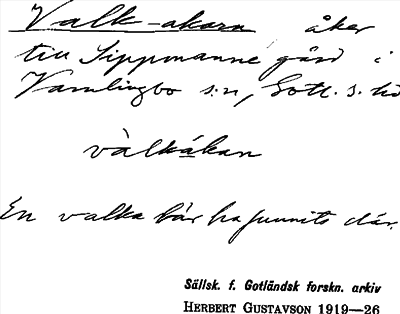 Valk-akarn åker
till Sippmanne gård i
Vamlingbo s:n, Gotl. s. hd
valkákan
En valka bär ha funnits där.
Sällsk. f. Gotländsk forskn. arkiv
HERBERT GUSTAVSON 1919—26